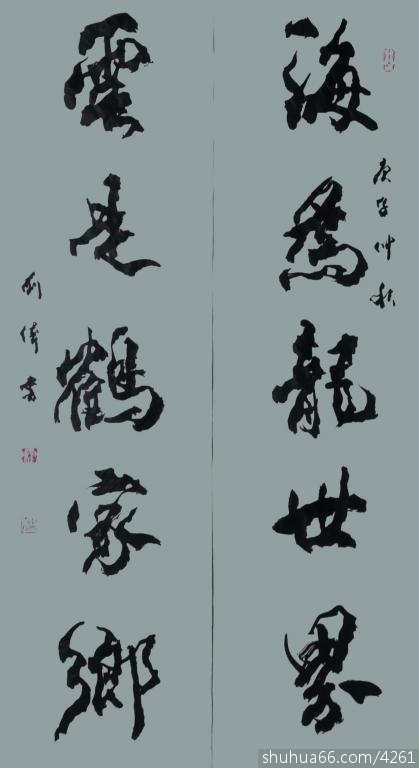 庚子仲秋
海為龍世界
雲是鶴家鄉
刘偉書
shuhua66.com/4261